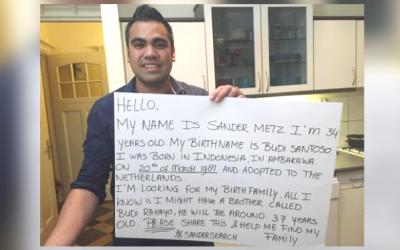 HELLO,
MY NAME IS SANDER METZ. I'M 34
YEARS OLD. MY BIRTHNAME IS BUDI SANTOSO
I WAS BORN IN INDONESIA, IN AMBARAWA
ON 20th OF MARCH 1981 AND ADOPTED TO THE
NETHERLANDS.
I'M LOOKING FOR MY BIRTH FAMILY. ALL I
KNOW IS I MIGHT HAVE A BROTHER CALLED
BUDI RAHAYO. HE WILL BE AROUND 37 YEARS
OLD. PLEASE SHARE THIS & HELP ME FIND MY
FAMILY
#SANDERSEARCH